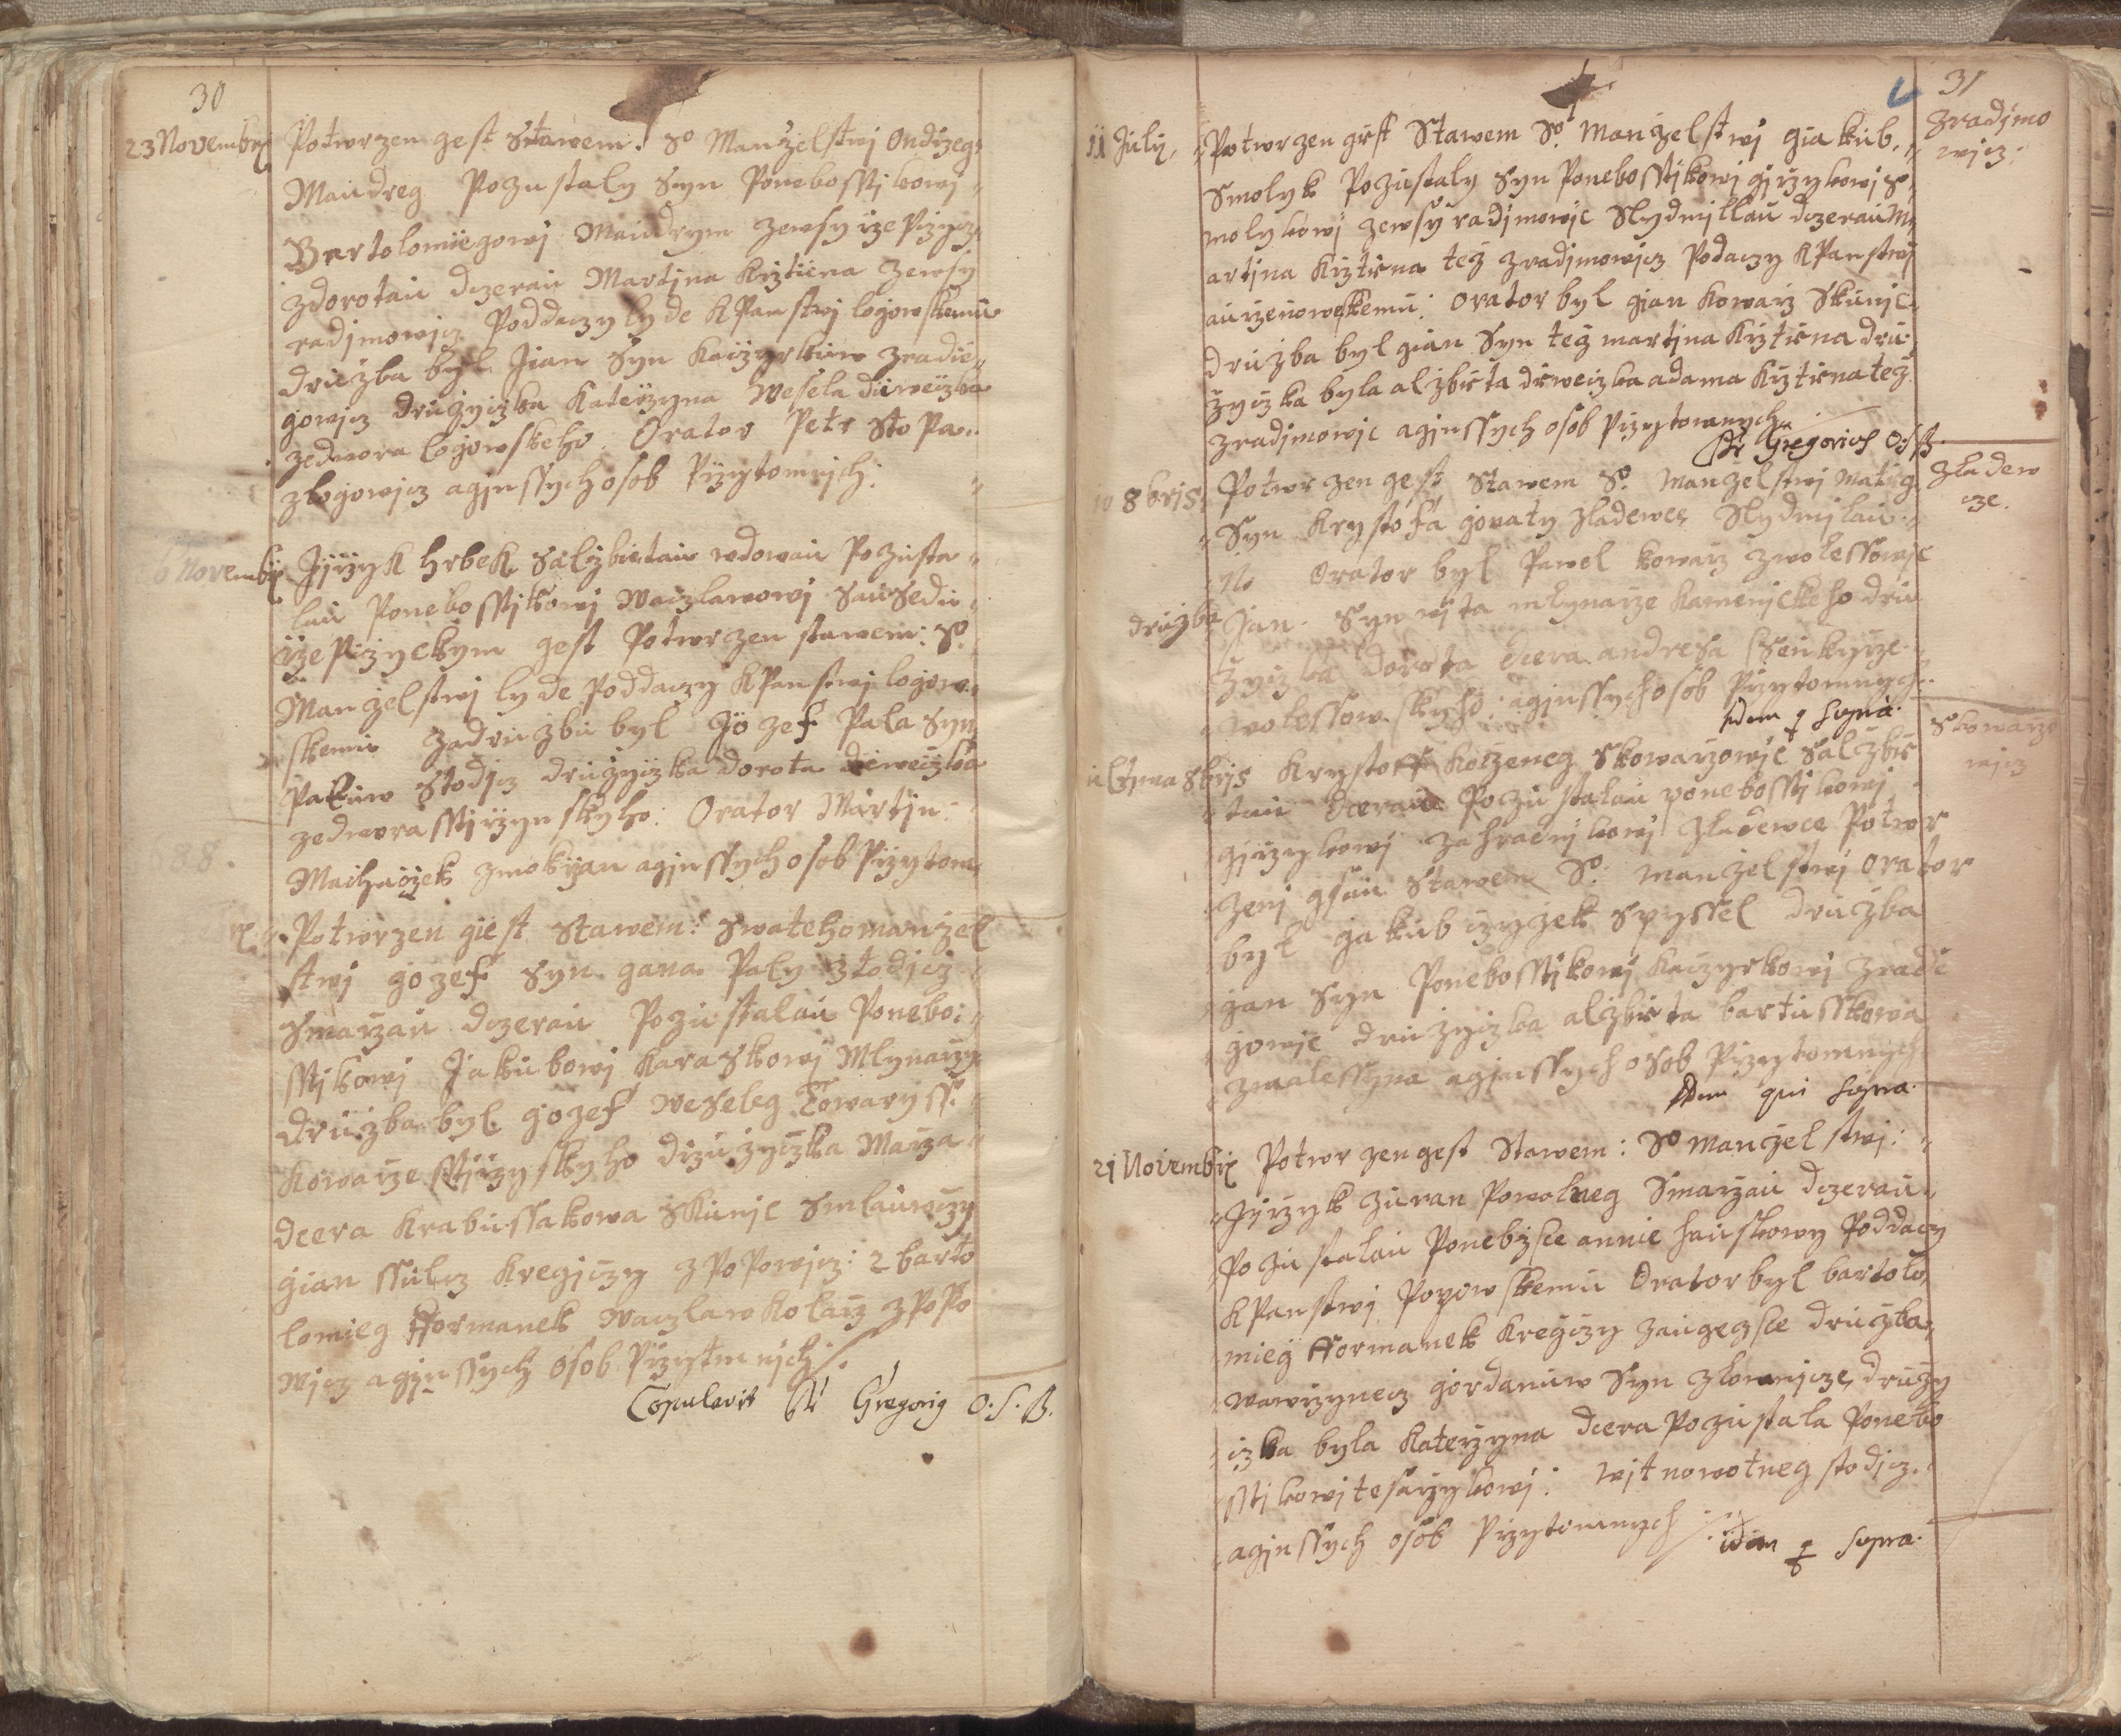 30
23 Novembris Potwrzen gest Stawem: So Manżelstwj Ondrzeg
Maudreg Pozustaly Syn Ponebosstjkowj
Bartolomiegowj Maudrym zewsy rzeprzycz
zdorotau dczerau Martjna Krztiena zewsy
radjmowicz Poddaczy lyde KPanstwj logowskemu
druzba byl Jian Syn Kaczyrkuw zradie
gowjcz družyczka Kateržyna Wesela diweczka
zedwora logowskeho. Orator Petr Stopa
zlogowicz agjnssych osob Przytomnjch:
6 Novembris Jjrzyk Hrbek Salzbietau wdowau Pozusta
lau Ponebosstjkowj Waczlawowj Sausedu
rzeprzyckym gest Potwrzen stawem: So
Manżelstwj lyde Poddaczy KPanstwj logow
skemu zadružbu byl Jozef Pala Syn
Paluw Stodjcz družyczka dorota diweczka
zedwora sstjrzynskyho: Orator Martjn
Machaczek zmokrzan agjnssych osob Przytom
Potwrzen giest Stawem: Swateho manżel
stwj gozef Syn gana Paly ztodjcz
Smarzau dczerau Pozustalau Ponebo
sstjkowj Jakubowj Karaskowj Mlynarzy
družba byl gozef weseleg Towaryss
Kowarze sstjrzyskyho družyczka Marza
dcera Krabussakowa Skunjc Smlauwczy
gian ssulcz Kregjczy zPopowjcz: 2 barto
lomieg fformanek Waczlaw Kolarz zPopo
wjcz agjnssych osob Przytmnich
Copulavit Fr Gregorig O.S.B.
31
11 July, Potwrzen gest Stawem So. Manżelstwj giakub
Smolyk Pozustaly Syn Ponebosstjkowj gjrzykowj S
molykowj zewsy radjmowjc Slydmjllau dczerau M
artjna Krztiena tež zradjmowjcz Podaczy KPanstwj
aurzenowskemu: orator byl gian Kowarz Skunjc
družba byl gian Syn tež martjna Krztiena dru
žyczka byla alzbieta diweczka adama Krztiena tež
zradjmowjc agjnssych osob Przytomnych
Fr Gregorius O.S.B.
zradjmo
wjcz:
10 8bris Potwrzen gest Stawem So. manżelstwj Matieg
Syn Krystofa gowaty zladewec Slydmjlau
N. Orator byl Pawel kowarz zwolessowjc
družba Jan Syn wjta mlynarze Kamenjckeho dru
žyczka dorota dcera andresa Senkyrze
wolessowskyho: agjnssych osob Przytomnych
idem q supra.
zladew
cze.
ultjma 8bris Krystoff Korzeneg Skowarzowjc Salzbie
tau dcerau Pozustalau ponebosstjkowj
gjrzykowj zahradnjkowj zladewce Potwr
zenj gsau Stawem So: manżelstwj Orator
byl gakub czyzek Spyssel družba
gan Syn Ponebosstjkowj Kaczyrkowj zradie
gowjc družyczka alzbieta bartusskowa
zmalessyna agjnssych osob Przytomnych
idem qui supra.
Skowarzo
wjcz
21 Novembris Potwrzen gest Stawem: So Manżelstwj:
Jjrzyk zuran Powolneg Smarzau dczerau
Pozustalau Ponebzsce annie hauskowy Poddaczy
KPanstwj Popowskemu Orator byl bartolo
mieg fformanek Kregczy zaugezsce družba
wawrzynecz gordanuw Syn zlownjcze, družy
czka byla Kateržyna dcera Pozustala Ponebo
sstjkowj tesarzykowj: wjt nowotneg stodjcz
agjnssych osob Przytomnych idem q supra.